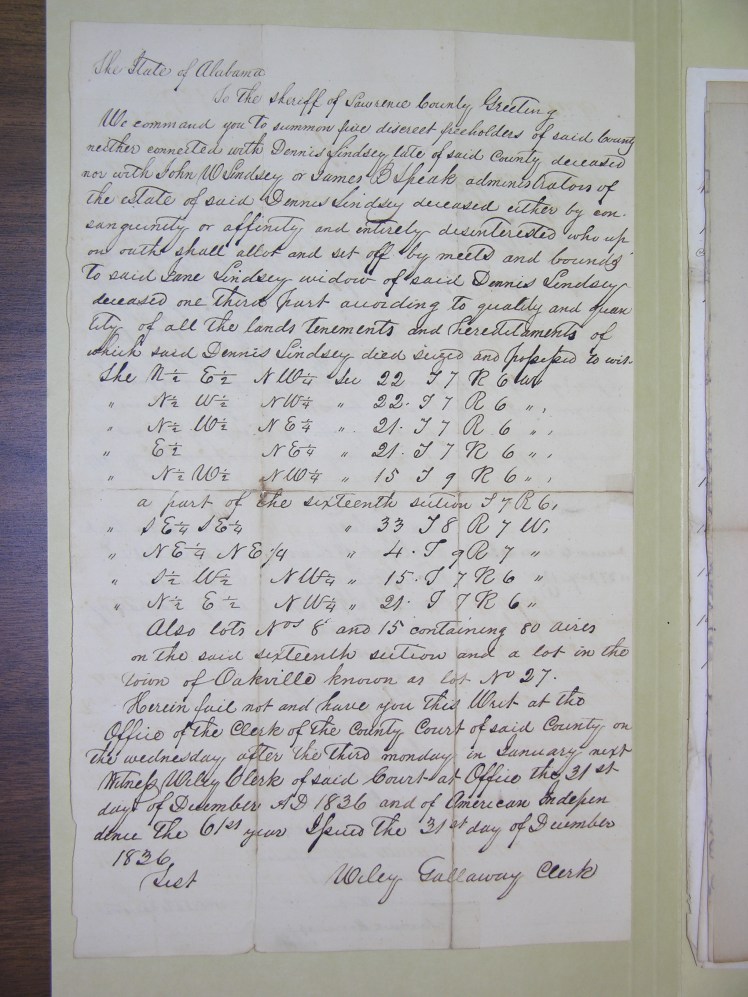 The State of Alabama
To the sheriff of Lawrence County Greeting
We command you to summon five discreet freeholders of said County
neither connected with Dennis Lindsey late of said County deceased
nor with John W Lindsey or James B Speak administrators of
the estate of said Dennis Lindsey deceased either by con-
sanguinity or affinity and entirely disinterested who up-
on oath shall allot and set off by meets and bounds
to said Jane Lindsey widow of said Dennis Lindsey
deceased one third part according to quality and quan
tity of all the lands tenements and hereditaments of
which said Dennis Lindsey died seized and possessed to wit-
The N½ E½ NW¼ Sec 22 T 7 R 6 W
" N½ W½ NW¼ " 22. T 7 R 6 ",
" N½ W½ NE¼ " 21. T 7 R 6 ",
" E½ NE¼ " 21. T 7 R 6 ",
" N½ W½ NW¼ " 15 T 9 R 6 ",
a part of the sixteenth section T 7 R 6,
" S E¼ S E¼ " 33 T 8 R 7 W,
" N E¼ N E 1/4 " 4. T 9 R 7 "
" S½ W½ NW¼ " 15. T 7 R 6 "
" N½ E½ NW¼ " 21. T 7 R 6 "
Also lots Nos 8 and 15 containing 80 acres
on the said sixteenth section and a lot in the
town of Oakville known as lot No 27.
Herein fail not and have you this Writ at the
Office of the Clerk of the County Court of said County on
the wednesday after the third monday in January next
Witness Wiley Clerk of said Court at Office the 31st
day of December AD 1836 and of American Indepen
dence the 61st year Issued the 31st day of December
1836
Test Wiley Gallaway Clerk